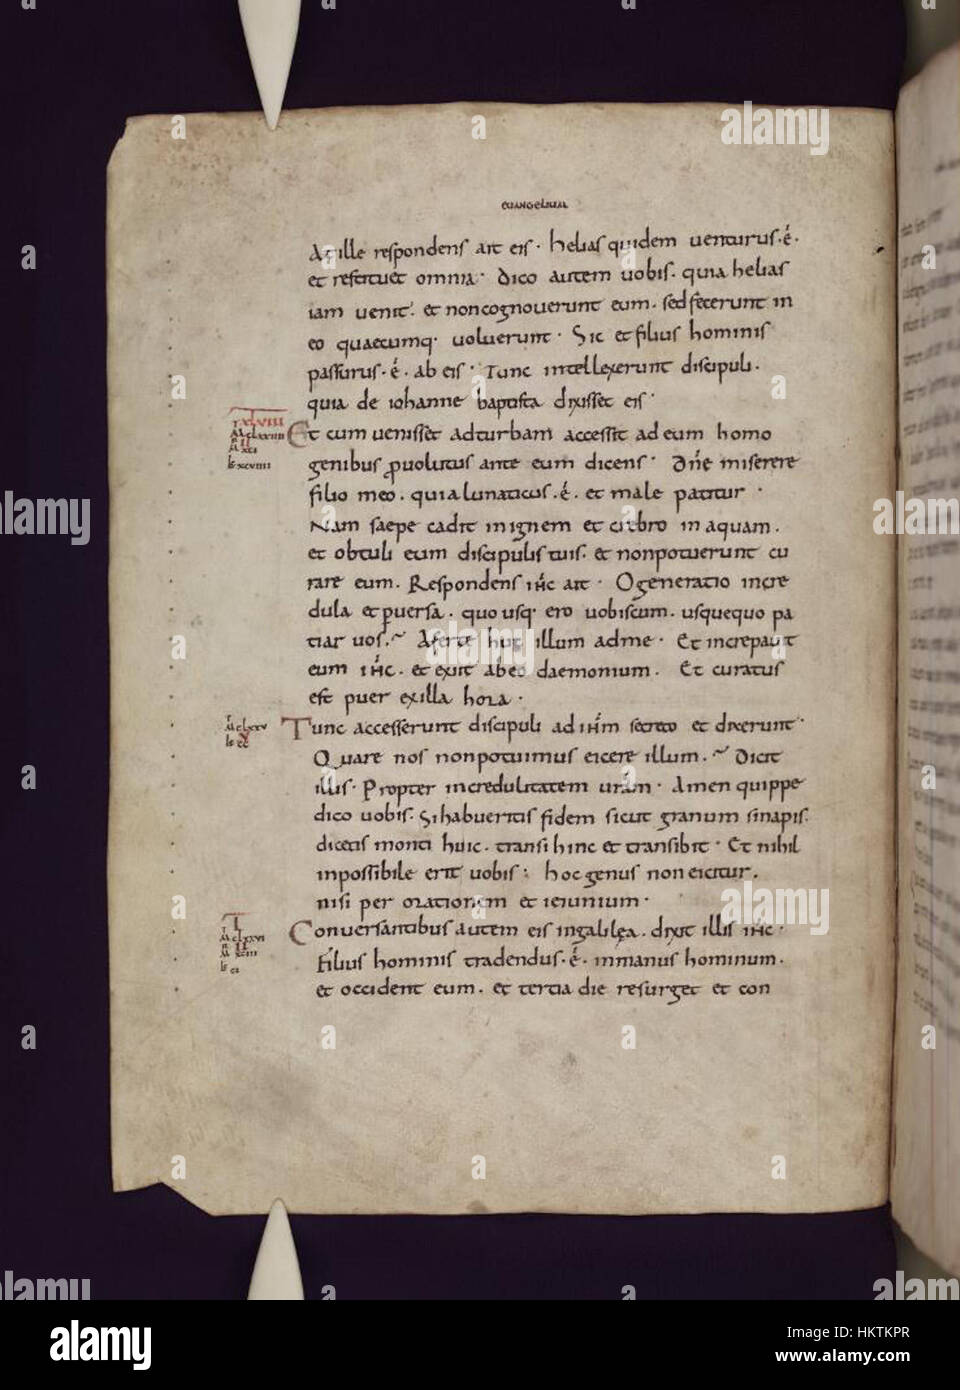 EUANGELIUM
At ille respondens ait eis · helias quidem uenturus · ē ·
et restituet omnia · Dico autem uobis · quia helias
iam uenit · et non cognouerunt eum · sed fecerunt in
eo quaecumq· uoluerunt · Sic et filius hominis
passurus · ē · ab eis · Tunc intellexerunt discipuli ·
quia de iohanne baptista dixisset eis ·
Et cum uenisset ad turbam accessit ad eum homo
genibus puolutus ante eum dicens · Dn̄e miserere
filio meo · quia lunaticus · ē · et male patitur ·
Nam saepe cadit in ignem et crebro in aquam ·
et obtuli eum discipulis tuis · et non potuerunt cu
rare eum · Respondens ih̄c ait · O generatio incre
dula et puersa · quo usq· ero uobiscum · usquequo pa
tiar uos · Aferte huc illum ad me · Et increpauit
eum ih̄c · et exiit ab eo daemonium · Et curatus
est puer ex illa hora ·
Tunc accesserunt discipuli ad ih̄m secreto et dixerunt ·
Quare nos non potuimus eicere illum · Dicit
illis · Propter incredulitatem uram · Amen quippe
dico uobis · Si habueritis fidem sicut granum sinapis ·
dicetis monti huic · transi hinc et transibit · Et nihil
inpossibile erit uobis · hoc genus non eicitur ·
nisi per orationem et ieiunium ·
Conuersantibus autem eis in galilęa · dixit illis ih̄c ·
Filius hominis tradendus · ē · in manus hominum ·
et occident eum · et tertia die resurget et con
alamy
HKTKPR
www.alamy.com